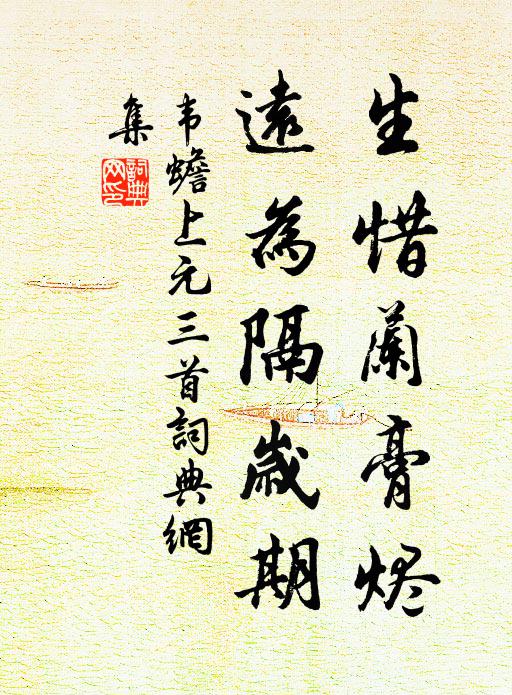 生惜蘭膏烬
遠為隔歲期
韦蟾上元三首詞典網
集
詞典
网印